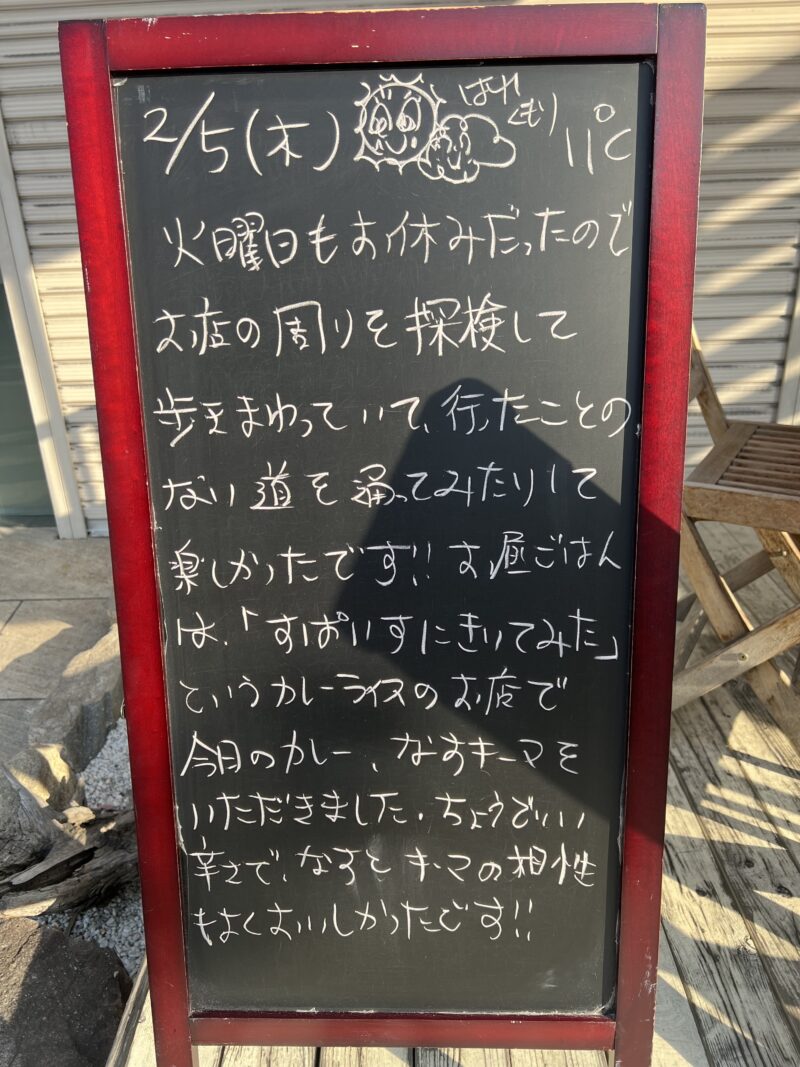 2/5(木) はれ くもり 11℃
火曜日もお休みだったので
お店の周りを探検して
歩きまわっていて、行ったことの
ない道を通ってみたりして
楽しかったです!! お昼ごはん
は、「すぱいすにきいてみた」
というカレーライスのお店で
今日のカレー、なすキーマを
いただきました。ちょうどいい
辛さで、なすとキーマの相性
もよくおいしかったです!!